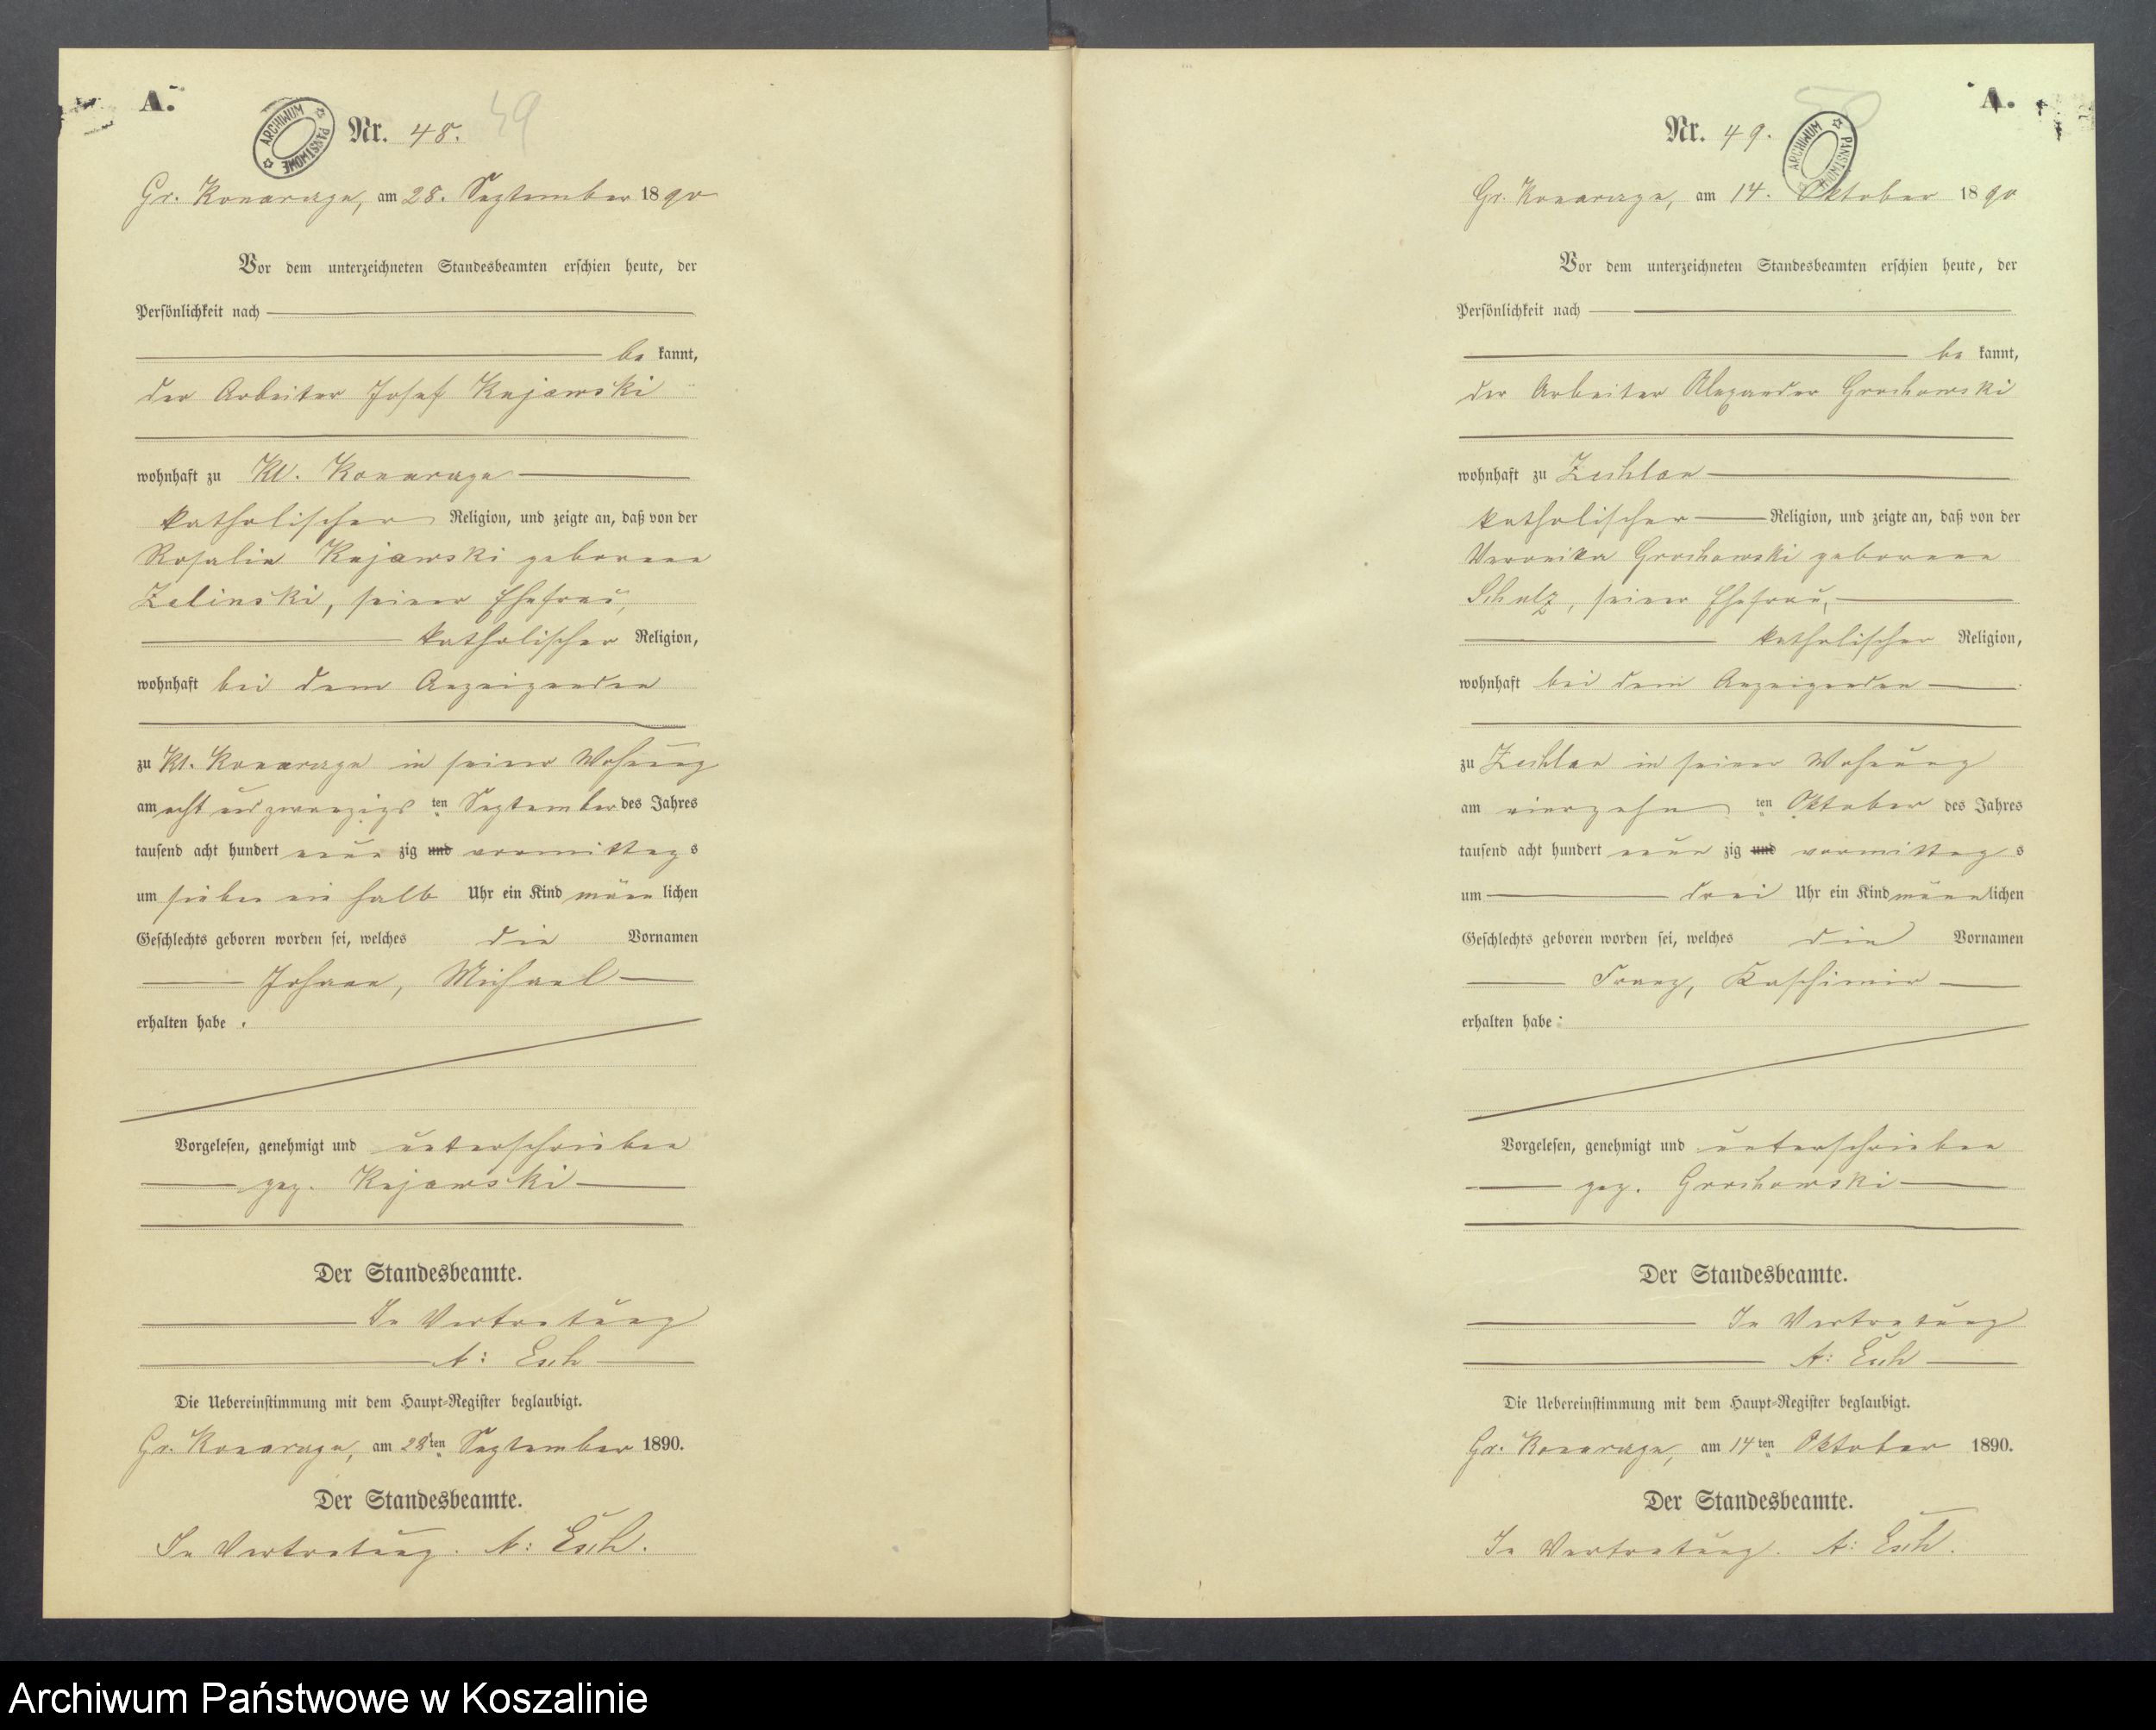 A.
ARCHIWUM PAŃSTWOWE
Nr. 48.
49
Gr. Konarczyn, am 28. September 1890
Vor dem unterzeichneten Standesbeamten erschien heute, der
Persönlichkeit nach
be kannt,
der Arbeiter Josef Kujawski
wohnhaft zu Kl. Konarczyn
katholischer Religion, und zeigte an, daß von der
Rosalie Kujawski geborene
Zelinski, seiner Ehefrau,
katholischer Religion,
wohnhaft bei dem Anzeigenden
zu Kl. Konarczyn in seiner Wohnung
am acht und zwanzigs ten September des Jahres
tausend acht hundert neun zig und vormittag s
um sieben ein halb Uhr ein Kind männ lichen
Geschlechts geboren worden sei, welches die Vornamen
Johann, Michael
erhalten habe.
Vorgelesen, genehmigt und unterschrieben
gez. Kujawski
Der Standesbeamte.
In Vertretung
A: Esch
Die Uebereinstimmung mit dem Haupt-Register beglaubigt.
Gr. Konarczyn, am 28ten September 1890.
Der Standesbeamte.
In Vertretung. A: Esch.
A.
50
Nr. 49.
ARCHIWUM PAŃSTWOWE
Gr. Konarczyn, am 14. Oktober 1890
Vor dem unterzeichneten Standesbeamten erschien heute, der
Persönlichkeit nach
be kannt,
der Arbeiter Alexander Grochowski
wohnhaft zu Zechlau
katholischer Religion, und zeigte an, daß von der
Veronika Grochowski geborene
Schulz, seiner Ehefrau,
katholischer Religion,
wohnhaft bei dem Anzeigenden
zu Zechlau in seiner Wohnung
am vierzehn ten Oktober des Jahres
tausend acht hundert neun zig und vormittag s
um drei Uhr ein Kind männ lichen
Geschlechts geboren worden sei, welches die Vornamen
Franz, Kaschimir
erhalten habe.
Vorgelesen, genehmigt und unterschrieben
gez. Grochowski
Der Standesbeamte.
In Vertretung
A: Esch
Die Uebereinstimmung mit dem Haupt-Register beglaubigt.
Gr. Konarczyn, am 14ten Oktober 1890.
Der Standesbeamte.
In Vertretung. A: Esch.
Archiwum Państwowe w Koszalinie